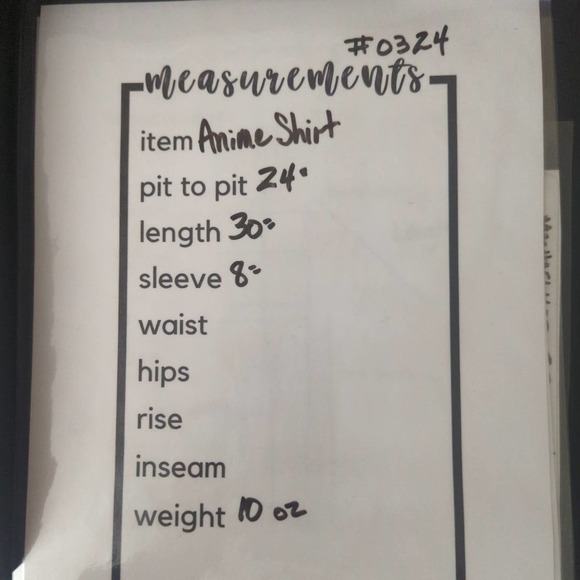 #0324
measurements
item Anime Shirt
pit to pit 24"
length 30"
sleeve 8"
waist
hips
rise
inseam
weight 10 oz